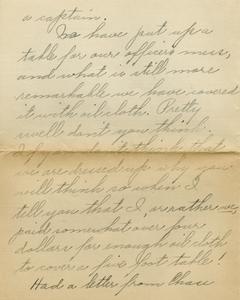 a captain.
We have put up a
table for our officers mess,
and what is still more
remarkable we have covered
it with oil cloth. Pretty
swell don't you think.
If you don't think that
we are dressed up why you
will think so when I
tell you that I, or rather we,
paid somewhat over four
dollars for enough oil cloth
to cover a five foot table!
Had a letter from Chase